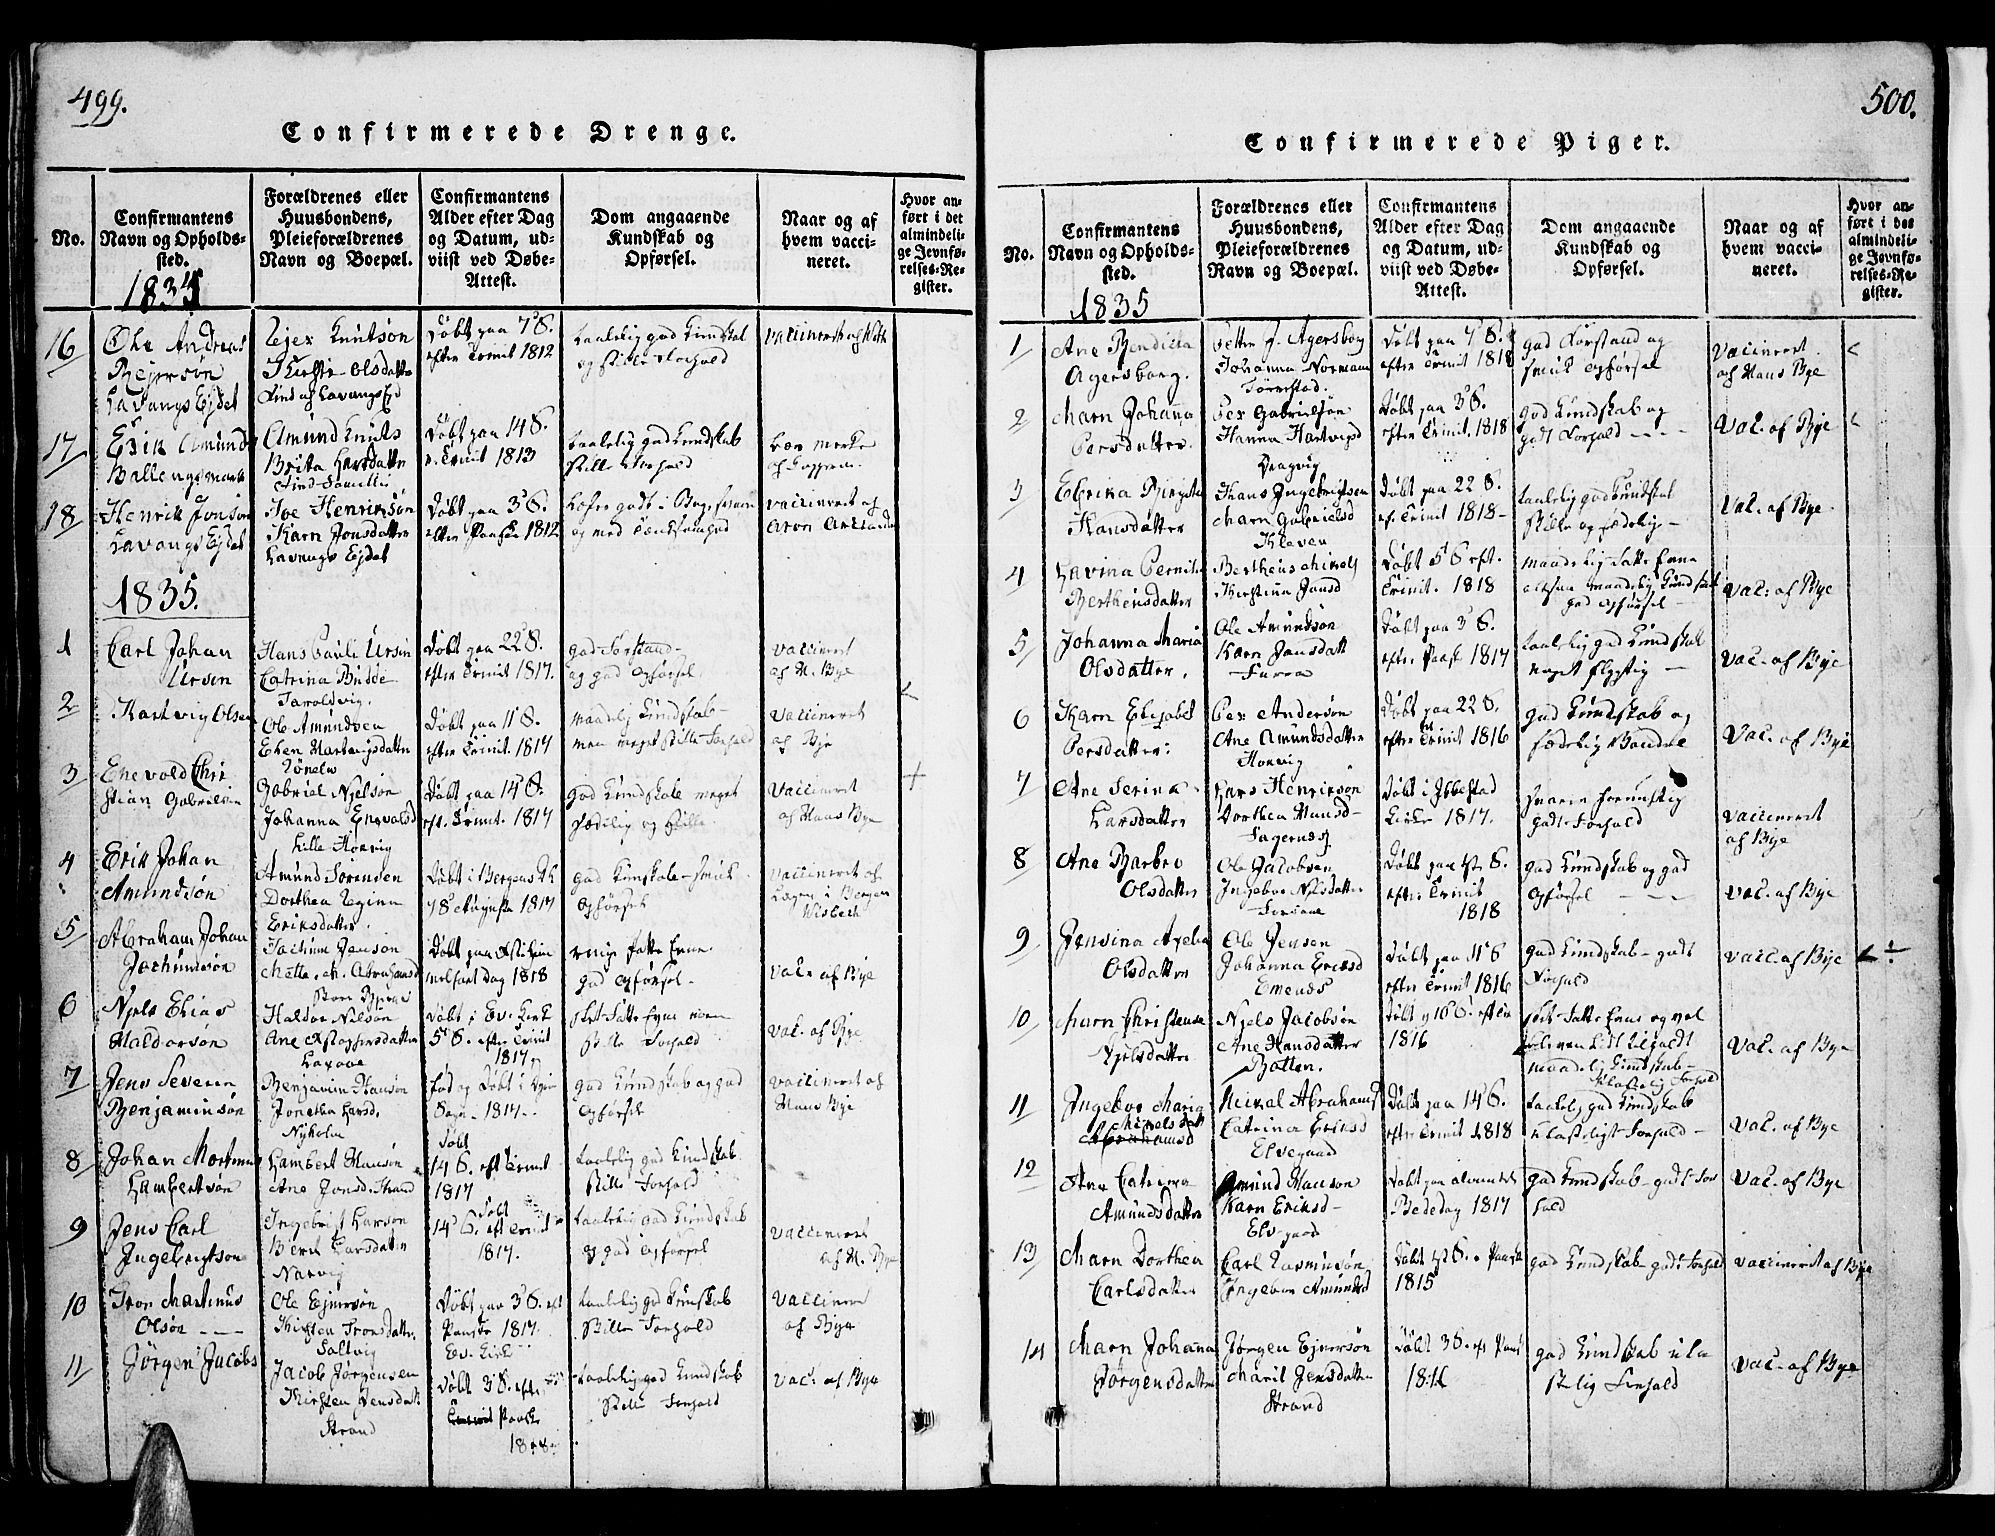 499.
Confirmerede Drenge.
No.
Confirmantens
Navn og Opholds-
sted.
Forældrenes eller
Huusbondens,
Pleieforældrenes
Navn og Boepæl.
Confirmantens
Alder efter Dag
og Datum, ud-
viist ved Døbe-
Attest.
Dom angaaende
Kundskab og
Opførsel.
Naar og af
hvem vacci-
neret.
Hvor an-
ført i det
almindeli-
ge Jevnfø-
relses-Re-
gister.
1834
16
Ole Andreas
Rejersøn
Lavangs Ejdet
Rejer Knutsøn
Kirsti Olsdatter
Døbt paa 7 S.
efter Trinit 1812
taalelig god Kundskab
og stille Forhold
17
Erik Amunds
Ballangsmark
Amund Knuts
Brita Larsdatter
Døbt paa 14 S.
e. Trinit 1813
taalelig god Kundskab
stille Forhold
bær merke
af Kopperne
18
Henrik Jonsøn
Lavangs Ejdet
Joe Henriksøn
Karn Jonsdatter
Lavangs Ejdet
Døbt paa 3 S.
efter Paaske 1812
vaccineret af
Aron Arctander
1835.
1
Carl Johan
Ursin
Hans Pauli Ursin
Catrina Budde
Taroldvig.
Døbt paa 22 S.
efter Trinit 1817.
god Forstand
og god Opførsel.
vaccineret
af H. Bye
2
Hartvig Olsen
Ole Amundsen
Elen Hartvigsdatter
Døbt paa 11 S.
efter Trinit. 1817
maadelig Kundskab
men meget stille Forhold
vaccineret
af Bye
3
Enevold Chri
stian Gabrielsen
Gabriel Njelsøn
Johanna Enevoldsd
Lille Horvig
Døbt paa 14 S.
eft. Trinit. 1817
god Kundskab meget
sædelig og stille
Vaccineret
af Hans Bye
4
Erik Johan
Amundsøn
Amund Sørensen
Dorthea Regina
Eriksdatter.
Døbt i Bergens Dk
18 Auguste 1817
god Kundskab smuk
Opførsel
vaccineret af
Lægen i Bergen
Wisbech
5
Abraham Johan
Jochumsøn
Jochum Jensøn
Mette M. Abrahamsd
Døbt paa Christi Him
melfart Dag 1818
ringe Fatte Evne
god Opførsel
Vac. af Bye
6
Njels Elias
Haldorsøn
Haldor Nilsøn
Ane Kristoffersdatter
Døbt i Ev. Kirk
5 S. efter Trinit
1817
slet Fatte Evne
stille Forhold
Vac. af Bye
7
Jens Severin
Benjaminsøn
Benjamin Hansøn
Jonetha Larsd.
Nyholm
fød og Døbt i
Sogn 1817
god Kundskab og god
Opførsel
vaccineret af
Hans Bye
8
Johan Mortinus
Lambertsøn
Lambert Hansøn
Ane Jonsd. Strand
Døbt
14 S. eft Trinit
1817
taalelig god Kundskab
stille Forhold
9
Jens Carl
Ingebrigtsøn
Ingebrigt Larsøn
Berit Larsdatter
Narvig
Døbt
14 S. eft Trinit
1817.
taalelig god Kundskab
og god Opførsel
Vaccineret
af H. Bye
10
Tron Martinus
Olsøn
Ole Ejnersøn
Kirsten Tronsdatter
Saltvig
Døbt paa 3 S. eft
Paaske 1817.
Ev. Kirk
taalelig god Kunskab
stille Forhold
Vaccineret
af Bye
11
Jørgen Jacobs
Jacob Jørgensen
Kirsten Jensdatt
Strand
Døbt 3 S. efter
Paaske
taalelig god Kundskab
stille Forhold
Vac. af Bye
500.
Confirmerede Piger.
No.
Confirmantens
Navn og Opholds-
sted.
Forældrenes eller
Huusbondens,
Pleieforældrenes
Navn og Boepæl.
Confirmantens
Alder efter Dag
og Datum, ud-
viist ved Døbe-
Attest.
Dom angaaende
Kundskab og
Opførsel.
Naar og af
hvem vacci-
neret.
Hvor an-
ført i det
almindeli-
ge Jevnfø-
relses-Re-
gister.
1835
1
Ane Bendicta
Agersborg.
Petter J. Agersborg
Johanna Normann
Tørrestad.
Døbt paa 7 S.
efter Trinit 1818
god Forstand og
smuk Opførsel
Vaccineret
af Hans Bye
2
Marn Johanna
Persdatter.
Per Gabrielsøn
Hanna Hartvigsd
Dragvig
Døbt paa 3 S.
efter Trinit. 1818
god Kundskab og
godt Forhold
Vac. af Bye
3
Elrika Birgitte
Hansdatter
Hans Ingebrigtsen
Marn Gabrielsd
Kleven
Døbt paa 22 S.
ef. Trinit 1818
taalelig god Kundskab
stille og sædelig
Vac. af Bye
4
Lavina Pernila
Berthensdatter
Bertheus Mikels
Kirstina Jonsd
Døbt 5 S eft.
Trinit. 1818
maadelig Fatte Evne
altsaa maadelig Kundskab
god Opførsel
Vac. af Bye
5
Johanna Maria
Olsdatter.
Ole Amundsøn
Karn Jonsdatt
Furra
Døbt paa 3 S.
efter Paask 1817
taalelig god Kundskab
noget flygtig
Vac. af Bye
6
Karn Elisabet
Persdatter:
Per Andersøn
Ane Amundsdatter
Horvig
Døbt paa 22 S.
efter Trinit 1816
god Kundskab og
sædelig Vandel
Vac. af Bye
7
Ane Serina
Larsdatter
Lars Henriksøn
Dorthea Hansd
Døbt i Ibbestad
Kirke 1817.
godt Forhold
vaccineret
af Bye
8
Ane Barbro
Olsdatter
Ole Jacobsen
Ingebor Nilsdatter
efter Trinit
1818
god Kundskab og god
Opførsel
Vac. af Bye
9
Jensina Axelia
Olsdatter
Ole Jensen
Johanna Eriksd
Emends
Døbt paa 11 S
efter Trinit 1816
god Kundskab godt
Forhold
Vacc af Bye
10
Marn Christense
Njelsdatter
Njels Jacobsøn
Ane Hansdatter
Botten.
1816
maadelig Kundskab
Vac. af Bye
11
Ingebor Maria
Mikelsdatt
Abrahamsd
Mikal Abrahams
Catrina Eriksd
Elvegaard
Døbt paa 14 S.
efter Trinit 1818
taalelig god Kundskab
ulasteligt Forhold
Vac. af Bye
12
Ane Catrina
Amundsdatter
Amund Hansøn
Karn Eriksd
Elvegaard
Døbt paa alminde
Bededag 1817
god Kundskab godt For
hold
Vac. af Bye
13
Marn Dorthea
Carlsdatter
Carl Rasmusøn
Ingebor Amundsd
1815
god Kundskab godt Forhold
vaccineret af Bye
14
Marn Johanna
Jørgensdatter
Jørgen Ejnersøn
Marit Jensdatter
Strand
Døbt 3 S. eft Paas
1816
god Kundskab ula
stelig Forhold
Vac. af Bye